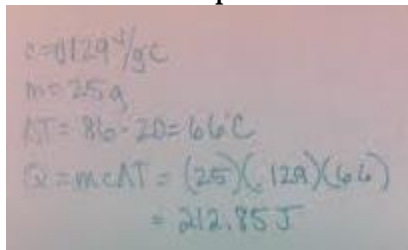 c = 0.129 J/gC
m = 25g
ΔT = 86 - 20 = 66°C
Q = mcΔT = (25)(.129)(66)
= 212.85 J